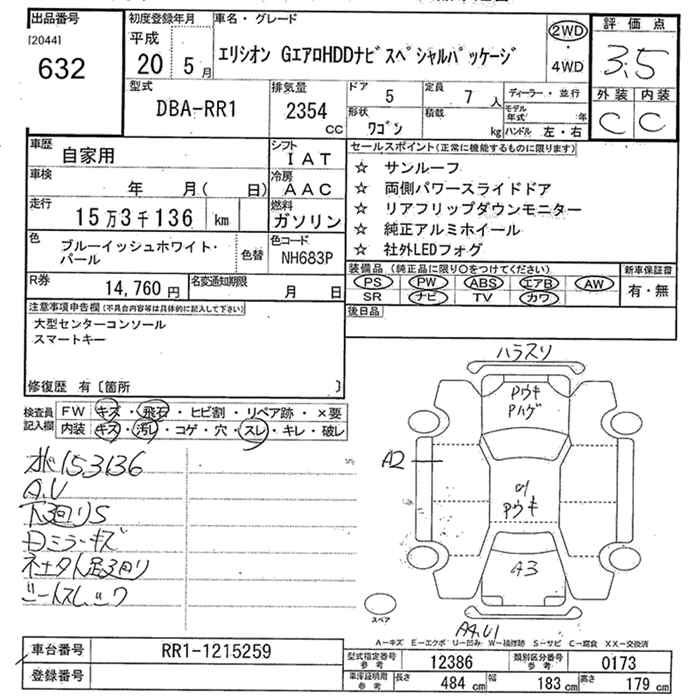 出品番号
[2044]
632
初度登録年月
平成
20 5月
車名・グレード
エリシオン GエアロHDDナビスペシャルパッケージ
2WD
・
4WD
評価点
3.5
外装 内装
C C
型式
DBA-RR1
排気量
2354
cc
ドア
5
定員
7人
形状
ワゴン
積載
kg
ディーラー・並行
モデル年式 年
ハンドル 左・右
車歴
自家用
シフト
IAT
車検
年 月( 日)
冷房
AAC
走行
15万3千136 km
燃料
ガソリン
色
ブルーイッシュホワイト・パール
色替
色コード
NH683P
R券
14,760円
名変通知期限
月 日
セールスポイント(正常に機能するものに限ります)
☆ サンルーフ
☆ 両側パワースライドドア
☆ リアフリップダウンモニター
☆ 純正アルミホイール
☆ 社外LEDフォグ
装備品(純正品に限り○をつけてください)
PS PW ABS エアB AW
SR ナビ TV カワ
新車保証書
有・無
後日品
注意事項申告欄(不具合内容等は具体的に記入して下さい)
大型センターコンソール
スマートキー
修復歴 有〔箇所 〕
検査員記入欄
FW キズ・飛石・ヒビ割・リペア跡・×要
内装 キズ・汚レ・コゲ・穴・スレ・キレ・破レ
153136
A.U
下回りS
ミラーキズ
ハラスリ
Pウキ
Pハゲ
A2
Pウキ
A3
A4.U1
スペア
A-キズ E-エクボ U-凹み W-補修跡 S-サビ C-腐食 XX-交換済
車台番号
RR1-1215259
登録番号
型式指定番号
参考
12386
類別区分番号
参考
0173
車庫証明用
参考
長さ
484 cm
幅
183 cm
高さ
179 cm